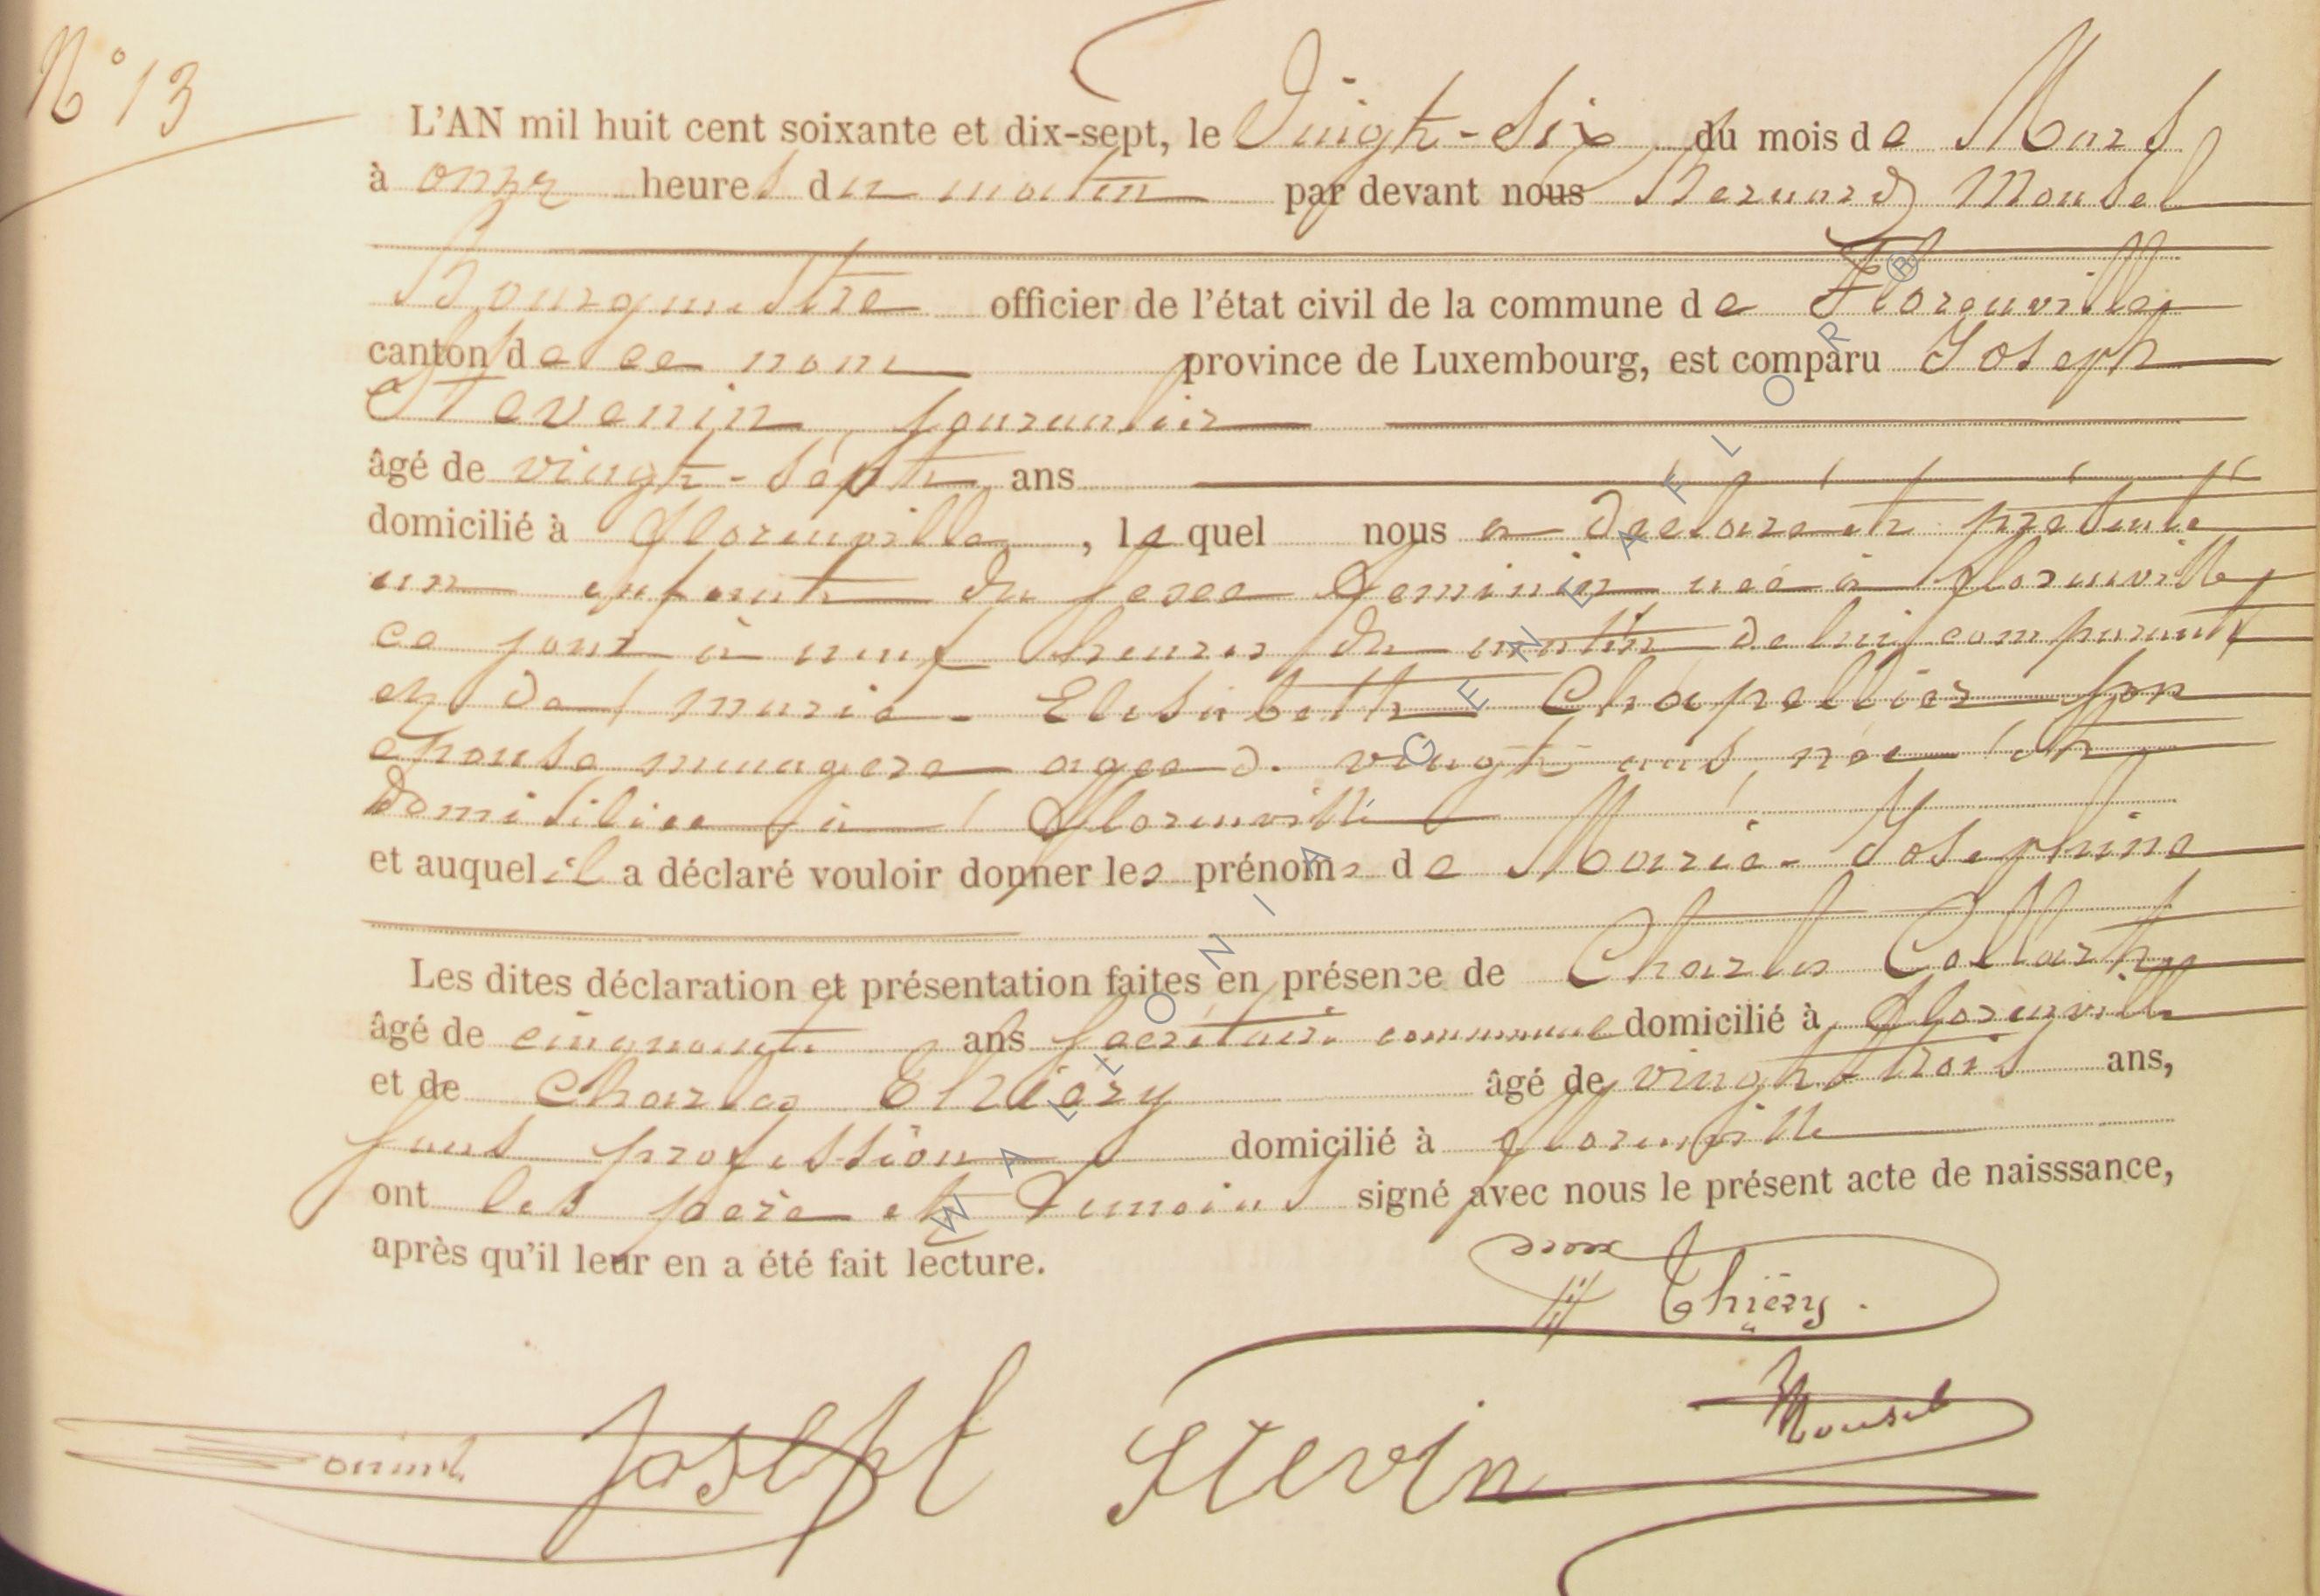 N° 13
L'AN mil huit cent soixante et dix-sept, le Vingt-Six du mois de Mars
à onze heures du matin par devant nous Bernard Mousel
Bourgmestre officier de l'état civil de la commune de Florenville
canton de ce nom province de Luxembourg, est comparu Joseph
Stevenin, journalier
âgé de vingt-sept ans
domicilié à Florenville, lequel nous a déclaré et présenté
un enfant du sexe feminin née à Florenville
ce jour à neuf heures du matin de lui comparant
et de Marie-Elisabeth Chapellier son
épouse ménagère agée de vingt ans, née et
domisiliée à Florenville
et auquel il a déclaré vouloir donner les prénoms de Marie-Josephine
Les dites déclaration et présentation faites en présence de Charles Collart
âgé de cinquante ans secrétaire communal domicilié à Florenville
et de Charles Thiéry âgé de vingt-trois ans,
sans profession domicilié à Florenville
ont les père et temoins signé avec nous le présent acte de naisssance,
après qu'il leur en a été fait lecture.
Thiéry.
Mousel
Joseph Stevin
WALLONIA GENEAFLOR®